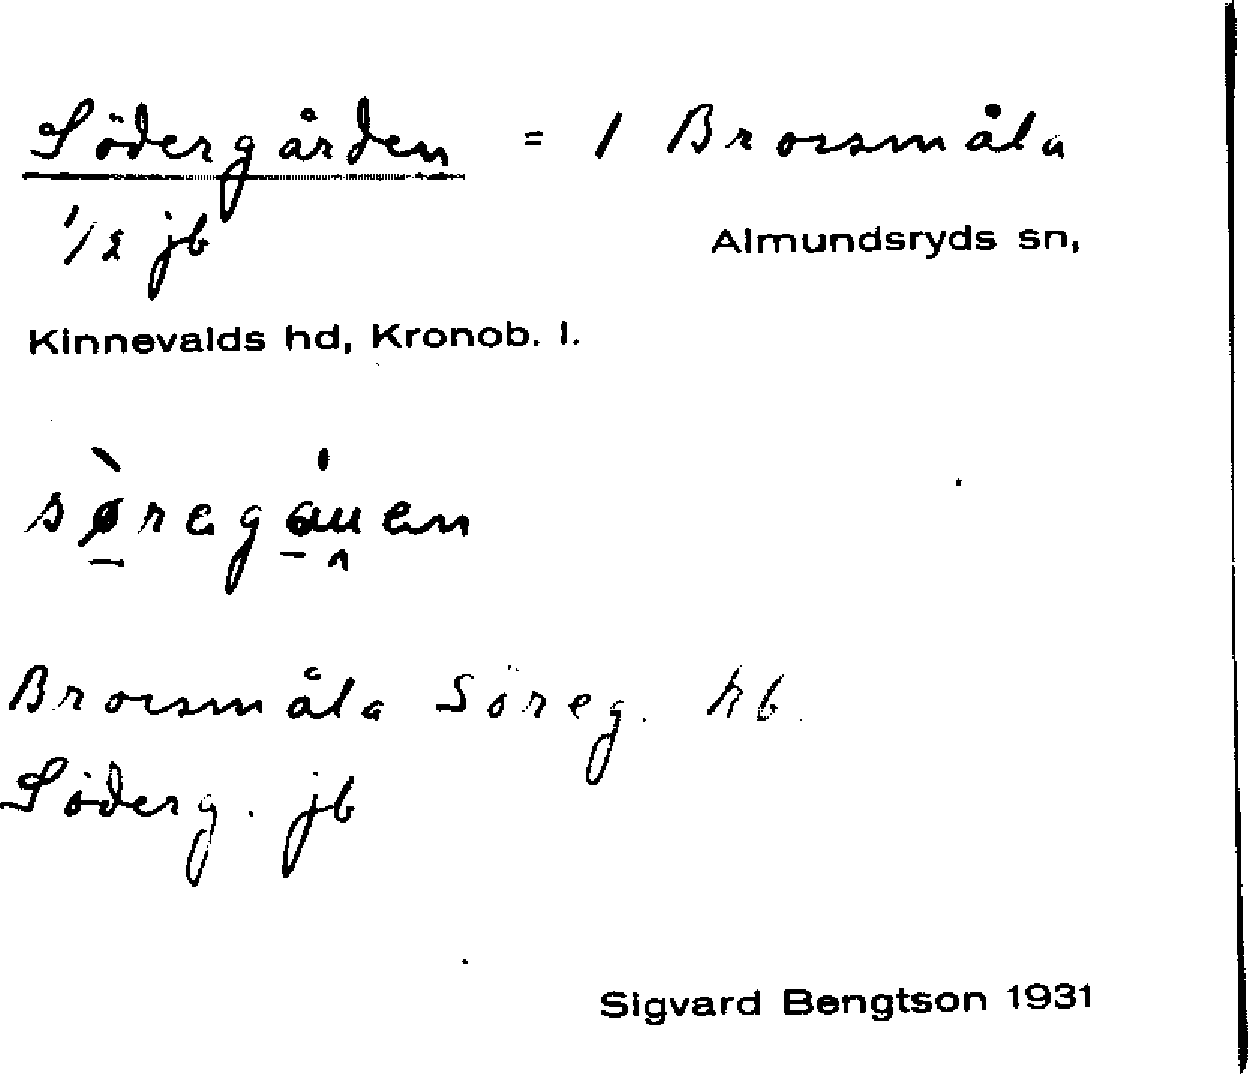 Södergården = 1 Brorsmåla
1/2 jb
Almundsryds sn,
Kinnevalds hd, Kronob. l.
Brorsmåla Söreg. hb.
Söderg. jb
Sigvard Bengtson 1931